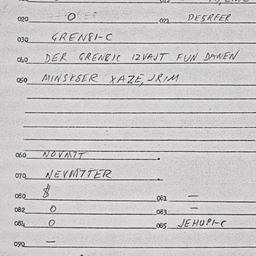 020 O 021 DESRFER
030 GRENSI-C
040 DER GRENEIC 12VAJT FUN DANEN
050 MINSKSER XAZE, JRIM
060 NOVMTT
070 NEVMTTER
080 $ 081 —
082 O 083 —
084 O 085 JEHUPI-C
090 —